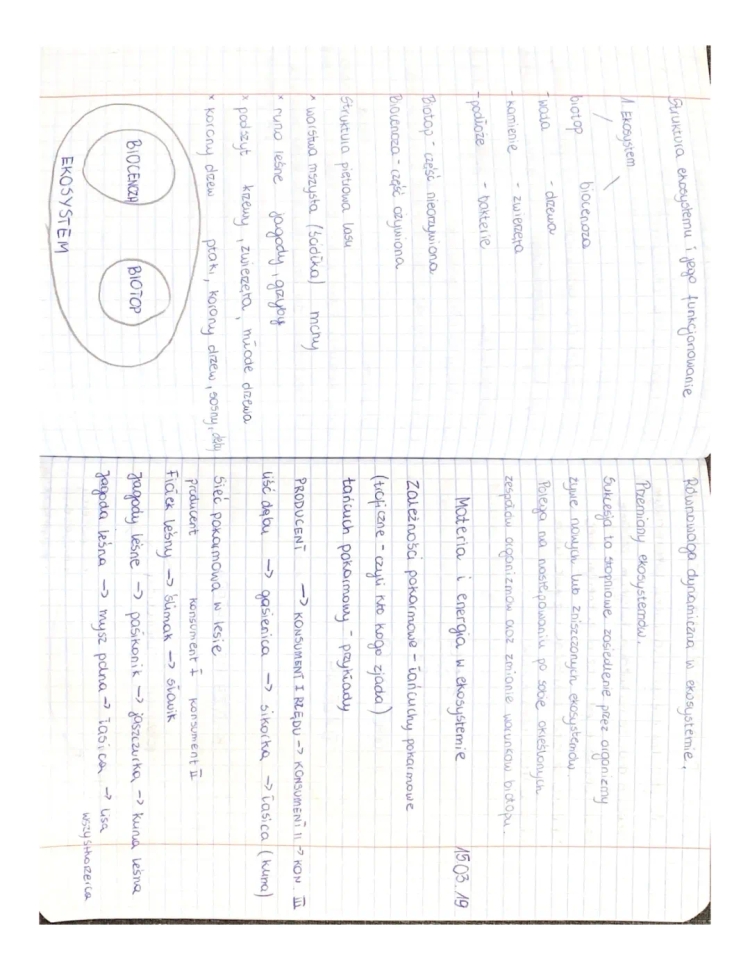 Struktura ekosystemu i jego funkcjonowanie
1. Ekosystem
biotop biocenoza
- woda - drzewa
- kamienie - zwierzęta
- podłoże - bakterie
Biotop - część nieożywiona
Biocenoza - część ożywiona
Struktura piętrowa lasu
x warstwa mszysta (ściółka) mchy
x runo leśne jagody, grzyby
x podszyt krzewy, zwierzęta, młode drzewa
x korony drzew ptaki, korony drzew, sosny, dęby
BIOCENOZA BIOTOP
EKOSYSTEM
Równowaga dynamiczna w ekosystemie.
Przemiany ekosystemów.
Sukcesja to stopniowe zasiedlenie przez organizmy
żywe nowych lub zniszczonych ekosystemów
Polega na następowaniu po sobie określonych
zespołów organizmów oraz zmianie warunków biotopu.
Materia i energia w ekosystemie 15.03.19
Zależności pokarmowe - łańcuchy pokarmowe
(troficzne - czyli kto kogo zjada)
Łańcuch pokarmowy - przykłady
PRODUCENT -> KONSUMENT I RZĘDU -> KONSUMENT II -> KON. III
liść dębu -> gąsienica -> sikorka -> łasica (kuna)
Sieć pokarmowa w lesie
producent konsument I konsument II
Fiołek leśny -> ślimak -> słowik
Jagody leśne -> pasikonik -> jaszczurka -> kuna leśna
Jagoda leśna -> mysz polna -> łasica -> lisa
wszystkożerca